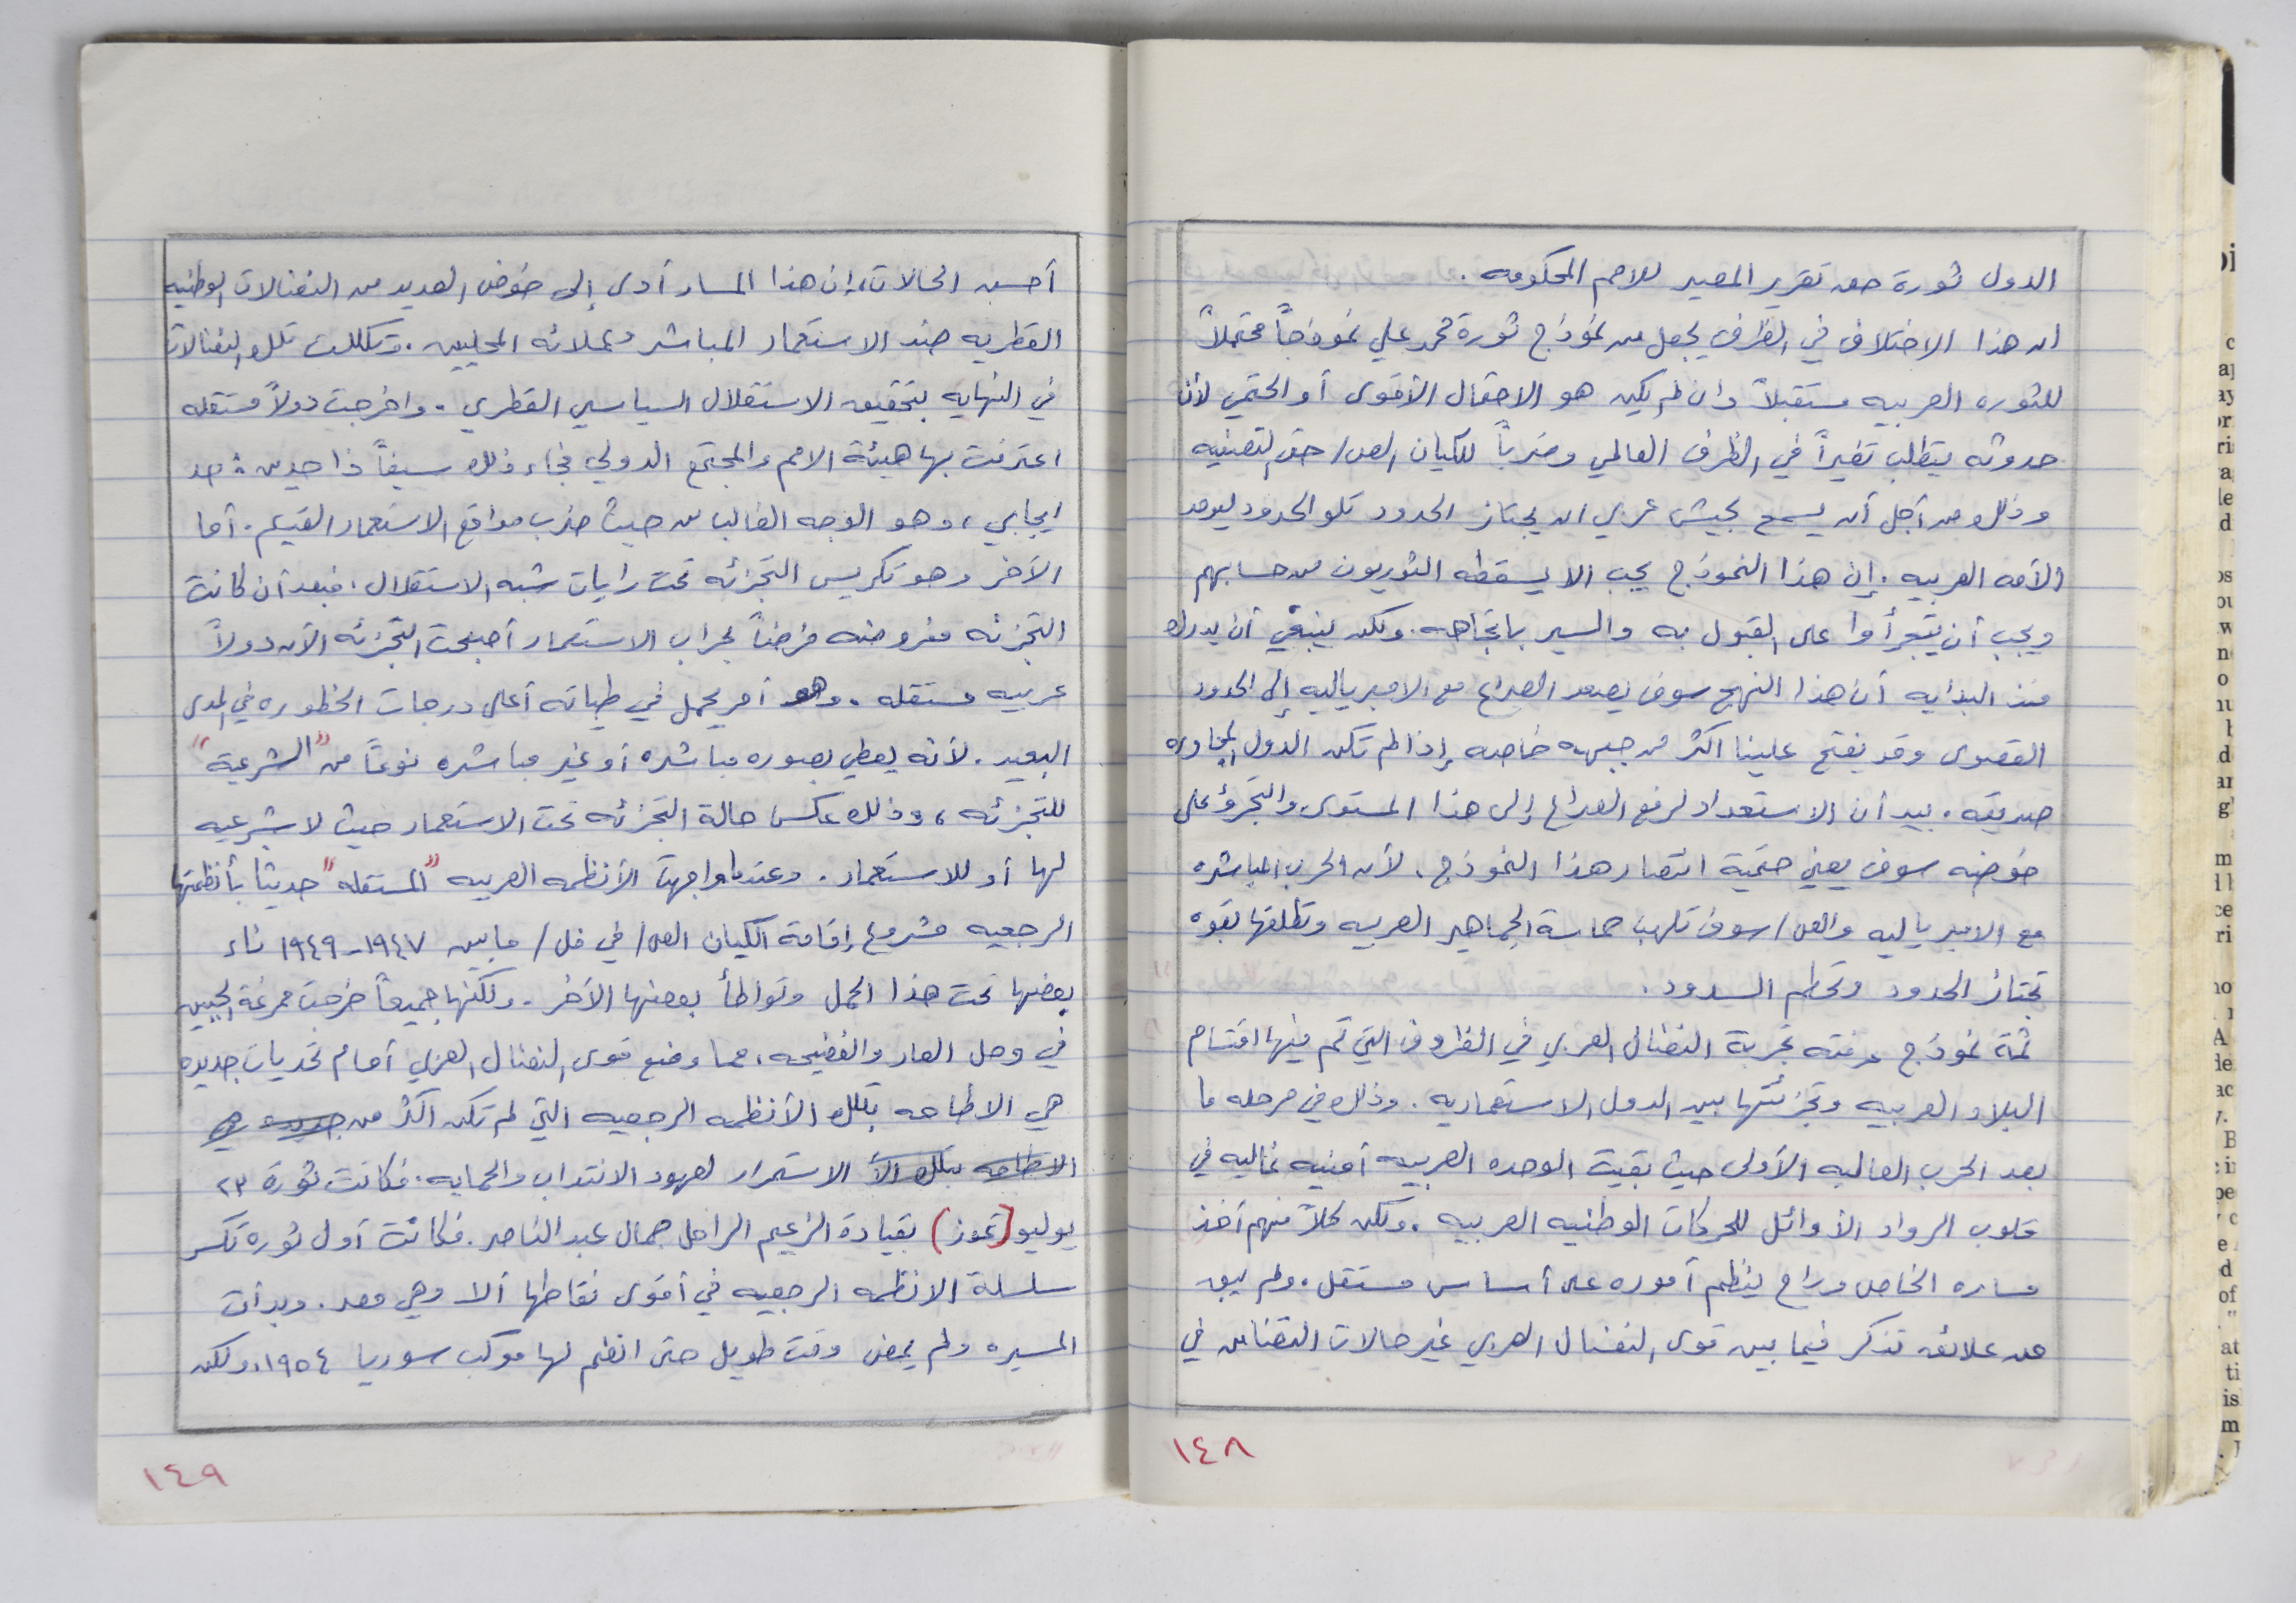 الدول ثورة حق تقرير المصير للامم المحكومه .
ان هذا الاختلاف في الظرف يجعل من نموذج ثورة محمد علي نموذجاً محتملاً
للثوره العربيه مستقبلاً وان لم يكن هو الاحتمال الأقوى أو الحتمي لأن
حدوثه يتطلب تغيراً في الظرف العالمي وضرباً للكيان الص/ حتى التصفيه
وذلك من أجل أن يسمح لجيش عربي ان يجتاز الحدود تلو الحدود ليوحد
الأمه العربيه . إن هذا النموذج يجب الا يسقطه الثوريون من حسابهم
ويجب أن يتجرأوا على القبول به والسير باتجاهه . ولكن ينبغي أن يدرك
منذ البدايه أن هذا النهج سوف يصعد الصراع مع الامبرياليه إلى الحدود
القصوى وقد يفتح علينا اكثر من جبهه خاصه إذا لم تكن الدول المجاوره
صديقه . بيد أن الاستعداد لرفع الصراع إلى هذا المستوى والتجرؤ على
خوضه سوف يعني حتمية انتصار هذا النموذج . لأن الحرب المباشره
مع الامبرياليه والص/ سوف تلهب حماسة الجماهير العربيه وتطلقها بقوه
تجتاز الحدود وتحطم السدود .
ثمة نموذج عرفته تجربة النضال العربي في الظروف التي تم فيها اقتسام
البلاد العربيه وتجزئتها بين الدول الاستعماريه . وذلك في مرحله ما
بعد الحرب العالميه الأولى حيث بقيت الوحده العربيه أمنيه غاليه في
قلوب الرواد الأوائل للحركات الوطنيه العربيه . ولكن كلاً منهم أخذ
مساره الخاص وراح ينظم أموره على أساس مستقل . ولم يبق
من علائق تذكر فيما بين قوى النضال العربي غير حالات التضامن في
١٤٨
أحسن الحالات ، إن هذا المسار أدى إلى خوض العديد من النضالات الوطنيه
القطريه ضد الاستعمار المباشر وعملائه المحليين . وتكللت تلك النضالات
في النهايه بتحقيق الاستقلال السياسي القطري . واخرجت دولاً مستقله
اعترفت بها هيئة الامم والمجتمع الدولي فجاء ذلك سيفاً ذا حدين : حد
ايجابي ، وهو الوجه الغالب من حيث ضرب مواقع الاستعمار القديم . أما
الآخر وهو تكريس التجزئه تحت رايات شبه الاستقلال . فبعد أن كانت
التجزئه مفروضه فرضاً بحراب الاستعمار أصبحت التجزئه الآن دولاً
عربيه مستقله . وهو أمر يحمل في طياته أعلى درجات الخطوره في المدى
البعيد . لأنه يعطي بصوره مباشره أو غير مباشره نوعاً من "الشرعية"
للتجزئه ، وذلك عكس حالة التجزئه تحت الاستعمار حيث لا شرعيه
لها أو للاستعمار . وعندما واجهت الأنظمه العربيه "المستقله" حديثا بأنظمتها
الرجعيه مشروع إقامة الكيان الص/ في فل/ ما بين ١٩٤٧-١٩٤٩ ناء
بعضها تحت هذا الحمل وتواطأ بعضها الآخر . ولكنها جميعاً خرجت ممرغة الجبين
في وحل العار والفضيحه . مما وضع قوى النضال العربي أمام تحديات جديده
هي الاطاحه بتلك الأنظمه الرجعيه التي لم تكن اكثر من
الاطاحه بتلك الأ الاستمرار لعهود الانتداب والحمايه . فكانت ثورة ٢٣
يوليو (تموز) بقيادة الزعيم الراحل جمال عبد الناصر . فكانت أول ثوره تكسر
سلسلة الانظمه الرجعيه في أقوى نقاطها ألا وهي مصر . وبدأت
المسيره ولم يمض وقت طويل حتى انضم لها موكب سوريا ١٩٥٤ . ولكن
١٤٩